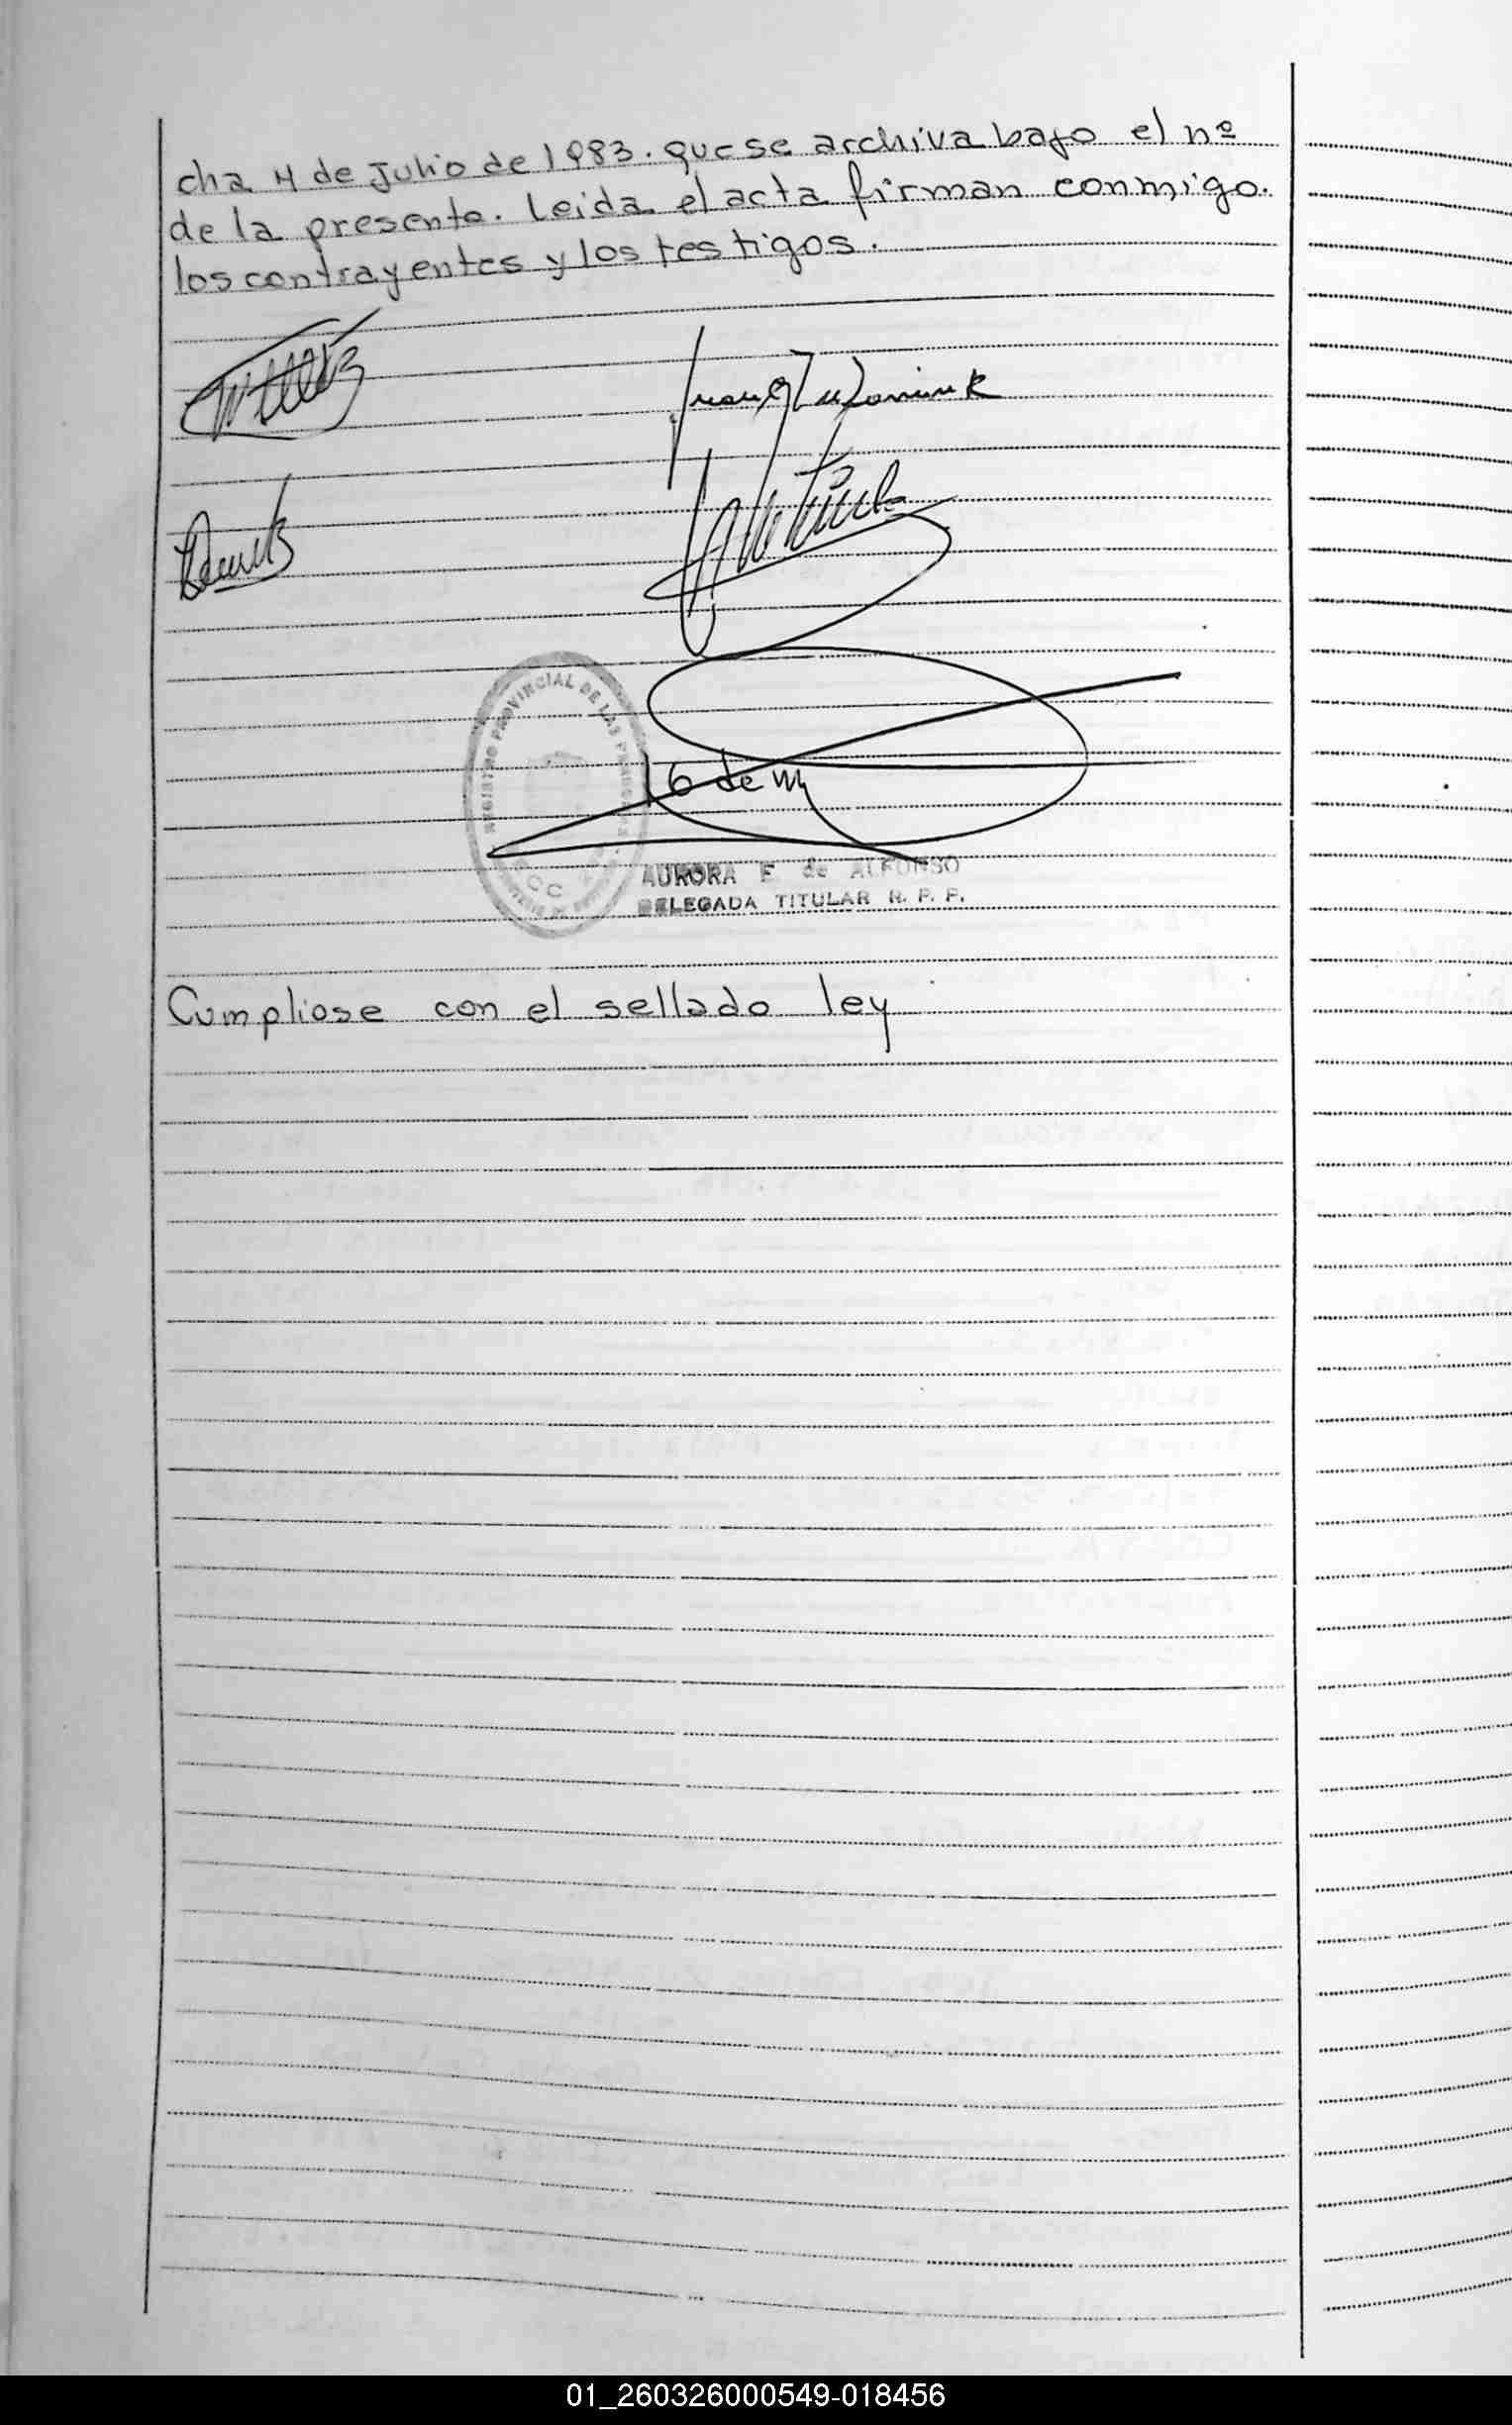 cha 4 de Julio de 1983. que se archiva bajo el nº
de la presente. Leida el acta firman conmigo.
los contrayentes y los testigos.
REGISTRO PROVINCIAL DE LAS
AURORA F de ALFONSO
DELEGADA TITULAR R. P. P.
Cumpliose con el sellado ley
01_260326000549-018456